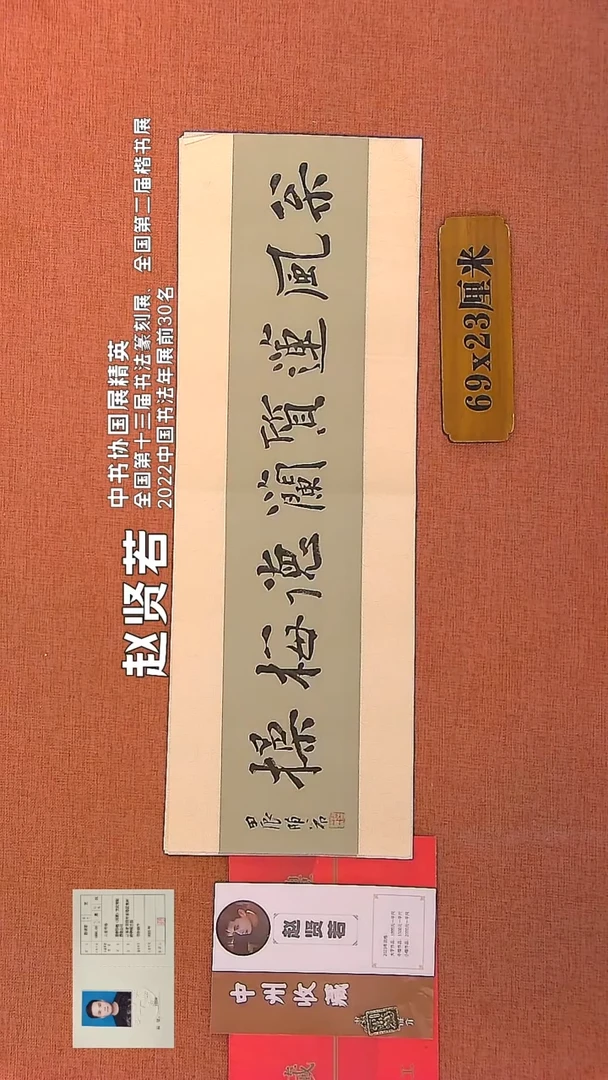 赵贤若
中书协国展精英
全国第十三届书法篆刻展、全国第二届楷书展
2022中国书法年展前30名
風蓮質蘭德梅操
甲辰
69x23厘米
赵贤若
中州收藏
藏